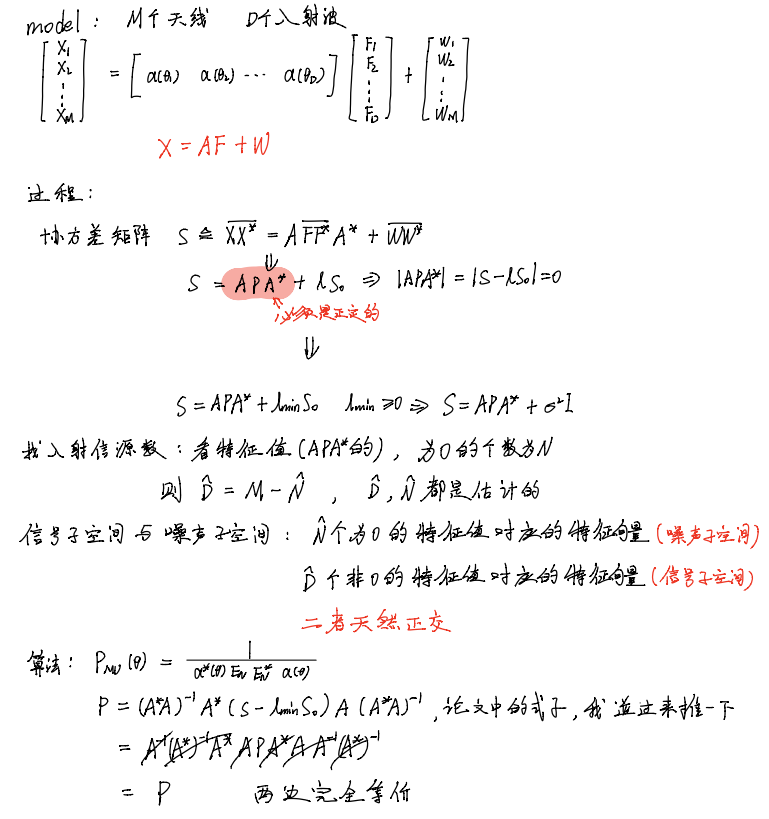 model: M个天线 D个入射波
[X₁ X₂ ⋮ X_M] = [a(θ₁) a(θ₂) ··· a(θ_D)] [F₁ F₂ ⋮ F_D] + [W₁ W₂ ⋮ W_M]
X = AF + W
过程:
协方差矩阵 S ≙ \overline{XX*} = A \overline{FF*} A* + \overline{WW*}
⇓
S = APA* + λS₀ ⇒ |APA*| = |S-λS₀| = 0
必须是正定的
⇓
S = APA* + λminS₀ λmin ≥ 0 ⇒ S = APA* + σ²I
找入射信源数: 看特征值(APA*的), 为0的个数为N
则 D̂ = M - N̂ , D̂, N̂ 都是估计的
信号子空间与噪声子空间: N̂个为0的特征值对应的特征向量(噪声子空间)
D̂个非0的特征值对应的特征向量(信号子空间)
二者天然正交
算法: P_MU(θ) = 1 / (a*(θ) E_N E_N* a(θ))
P = (A*A)⁻¹ A* (S - λminS₀) A (A*A)⁻¹, 论文中的式子, 我逆过来推一下
= A⁻¹(A*)⁻¹A* APA*A A⁻¹(A*)⁻¹
= P 两边完全等价